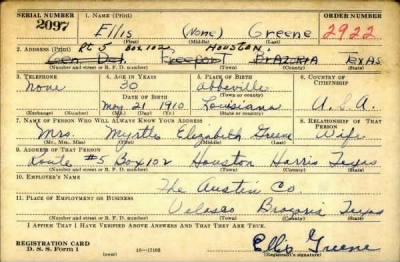 SERIAL NUMBER 1. NAME (Print) ORDER NUMBER
2097 Ellis (None) Greene 2922
(First) (Middle) (Last)
2. ADDRESS (Print) Rt 5 Box 102, Houston,
Gen. Del. Freeport BRAZORIA TEXAS
(Number and street or R. F. D. number) (Town) (County) (State)
3. TELEPHONE 4. AGE IN YEARS 5. PLACE OF BIRTH 6. COUNTRY OF CITIZENSHIP
None 30 Abbeville
DATE OF BIRTH (Town or county)
May 21 1910 Louisiana U.S.A.
(Mo.) (Day) (Yr.) (State or country)
7. NAME OF PERSON WHO WILL ALWAYS KNOW YOUR ADDRESS 8. RELATIONSHIP OF THAT PERSON
Mrs. Myrtle Elizabeth Greene Wife
(Mr., Mrs., Miss) (First) (Middle) (Last)
9. ADDRESS OF THAT PERSON
Route #5 Box 102 Houston Harris Texas
(Number and street or R. F. D. number) (Town) (County) (State)
10. EMPLOYER'S NAME
The Austin Co.
11. PLACE OF EMPLOYMENT OR BUSINESS
Velasco Brazoria Texas
(Number and street or R. F. D. number) (Town) (County) (State)
I AFFIRM THAT I HAVE VERIFIED ABOVE ANSWERS AND THAT THEY ARE TRUE.
REGISTRATION CARD
D. S. S. Form 1 Ellis Greene
(Registrant's signature)